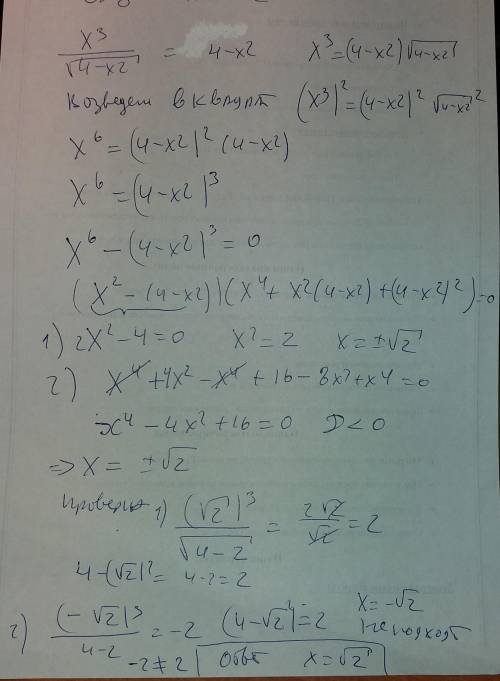 x³/√(4-x2) = 4-x2 x³=(4-x2)√(4-x2)
Возведем в квадрат (x³)²=(4-x2)²√(4-x2)²
x⁶=(4-x2)²(4-x2)
x⁶=(4-x2)³
x⁶-(4-x2)³=0
(x²-(4-x2))(x⁴+x2(4-x2)+(4-x2)²)=0
1) 2x²-4=0 x²=2 x=±√2
2) x⁴+4x²-x⁴+16-8x²+x4=0
x⁴-4x²+16=0 D<0
=> x= ±√2
Проверка 1) (√2)³/√(4-2) = 2√2/√2 = 2
4-(√2)²= 4-2=2
2) (-√2)³/4-2 = -2 (4-√2²)=2 x=-√2
не подходт
-2≠2 Ответ x=√2